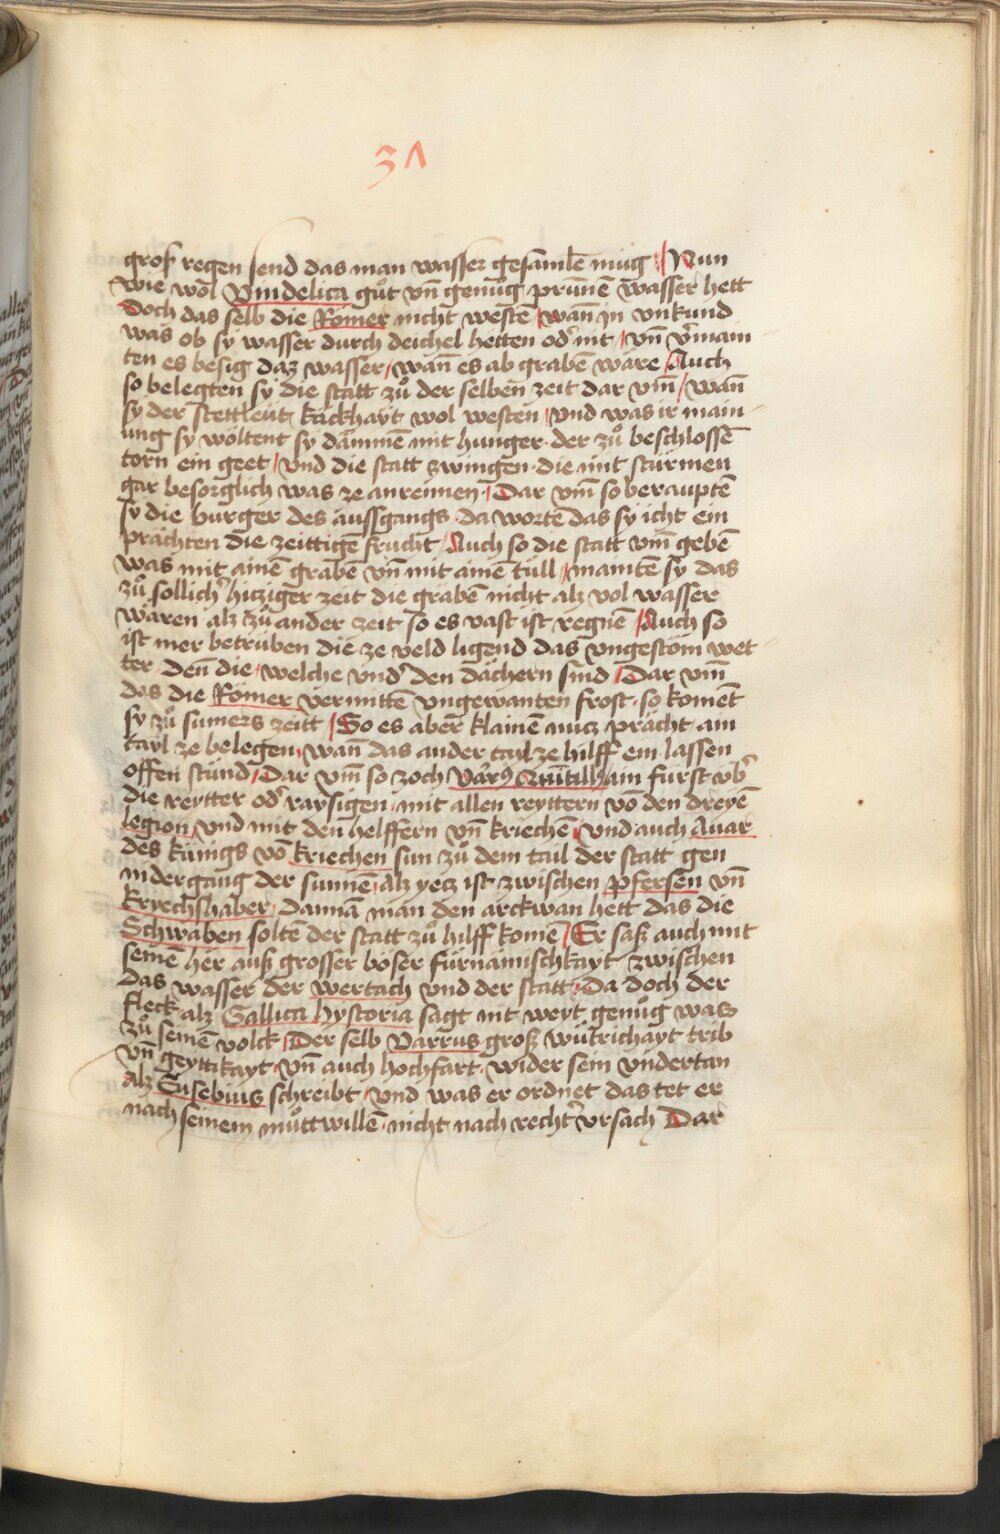 37
groſ regen ſend das man waſſer geſamlē müg / Nun
wie wol Vindelica gůt vn̄ genůg prunnē waſſer hett
Doch das ſelb die Römer nicht weſtē / wān in vnkund
was ob ſy waſſer durch deichel hetten od᷑ nit / vn̄ v᷑main
ten es beſig daz waſſer / wān es ab grabē wäre / Auch
ſo belegten ſy die ſtatt zů der ſelben zeit dar vm̄ / wān
ſy der ſtettleüt käckhayt wol weſten / vnd was ir main
ung ſy wöltent ſy dämmē mit hunger · der zů beſchloſſē
torn ein geet / vnd die ſtatt zwingen · die mit ſtürmen
gar beſorglich was ze anrennen / Dar vm̄ ſo berauptē
ſy die burger des auſſgangs · da wortē das ſy icht ein
prächten die zeittigē frucht / Auch ſo die ſtatt vm̄ gebē
was mit ainē grabē vn̄ mit ainē tüll / maintē ſy das
zů ſollich᷑ hitziger zeit die grabē nicht alz vol waſſer
wären alz zů ander zeit ſo es vaſt iſt regnē / Auch ſo
iſt mer betrüben die ze veld ligend das vngeſtöm wet
ter · den̄ die / welche vnd᷑ den dächern ſind / Dar vm̄
das die Römer vermittē vngewanten froſt · ſo komēt
ſy zů ſumers zeitt / So es aber klainē nutz prächt am
tayl ze belegen / wān das ander tail ze hilff ein laſſen
offen ſtünd / Dar vm̄ ſo zoch Varꝰ Quītiliꝰ ain fürſt vb᷑
die reytter od᷑ rayſigen · mit allen reyttern vō den dreyē
legion / vnd mit den helffern vn̄ kriechē / vnd auch Auar
des künigs vō kriechen ſun zů dem tail der ſtatt gen
nidergang der ſunnē / alz yetz iſt zwiſchen pferſen vn̄
kryechſhaber / dannā man den arckwan hett das die
Schwaben ſoltē der ſtatt zů hilff komē / Er ſaß auch mit
ſeinē her auß groſſer böſer fürnämiſchkayt zwiſchen
das waſſer der wertach vnd der ſtatt / Da doch der
fleck alz Gallica hyſtoria ſagt nit weyt genůg was
zů ſeinē volck / Der ſelb Varrus groß wütrichayt trib
vn̄ geyttikayt / vn̄ auch hochfart · wider ſein vndertan
Alz Euſebius ſchreibt / vnd was er ordnet das tet er
nach ſeinem můttwillē · nicht nach recht᷑ vrſach Dar